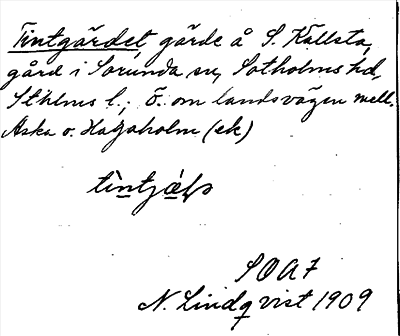 Tintgärdet, gärde å S. Källsta,
gård i Sorunda sn, Sotholms hd,
Sthlms l.; ö. om landsvägen mell.
Aska o. Hagaholm (ek)
SOA7
N. Lindqvist 1909